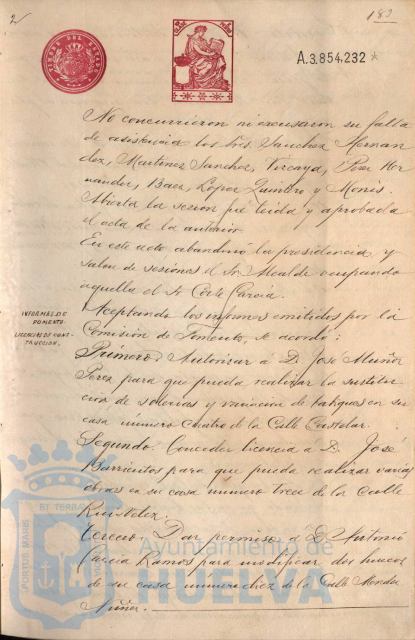 2
183
A.3.854.232
No concurrieron ni excusaron su falta
de asistencia los Sres. Sanchez Hernan
dez, Martinez Sanchez, Vizcaya, Perez Her
nandez, Baez, López Quintero y Monis.
Abierta la sesion fué leida y aprobada
el acta de la anterior.
En este acto abandonó la presidencia y
salon de sesiones el Sr. Alcalde ocupando
aquella el Sr. Corte Garcia.
INFORMES DE
FOMENTO.
LICENCIAS DE CONS-
TRUCCION.
Aceptando los informes emitidos por la
Comision de Fomento, se acordó:
Primero. Autorizar a D. José Muñoz
Perez para que pueda realizar la sustitu
cion de solerias y variacion de tabiques en su
casa numero cuatro de la Calle Castelar.
Segundo. Conceder licencia a D. José
Barrientos para que pueda realizar varias
obras en su casa numero trece de la Calle
Ruiz Velez.
Tercero. Dar permiso á D. Antonio
Garcia Ramos para modificar dos huecos
de su casa numero diez de la Calle Mendez
Nuñez.
PORTUS MARIS ET TERRAE
Ayuntamiento de
HUELVA